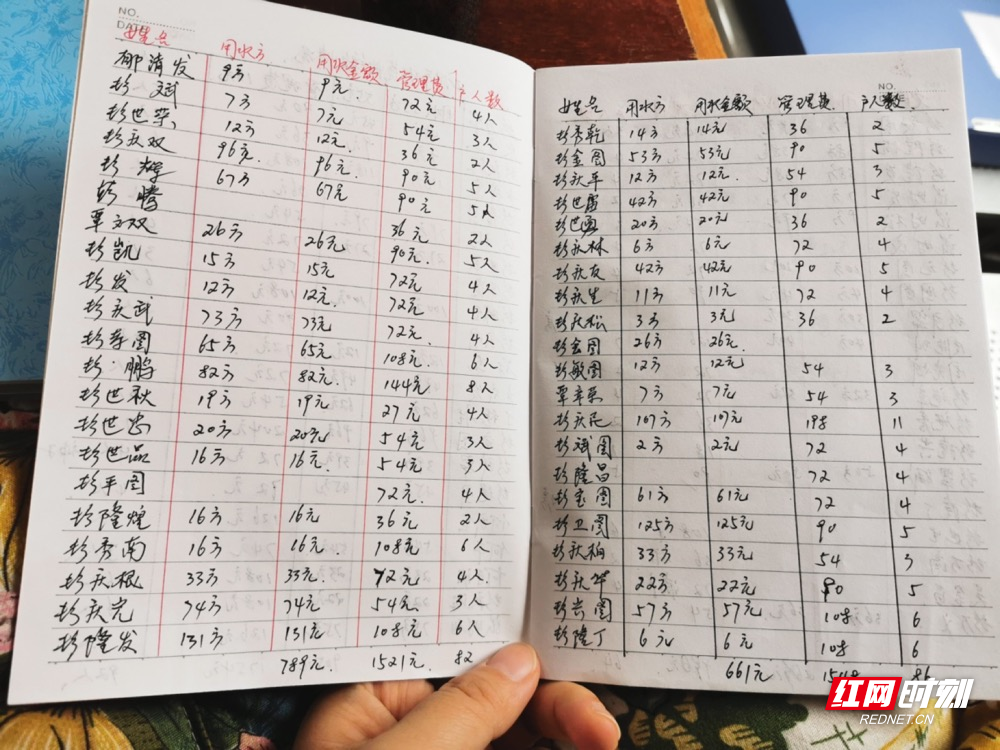 NO.
DATE
姓名 用水方 用水金额 管理费 户人数
郁清发 9方 9元. 72元 4人
彭斌 7方 7元 54元 3人
彭世荣 12方 12元. 36元 2人
彭庆双 96方. 96元 90元 5人
彭辉 67方 67元 90元 5人
彭腾 36元 2人
覃立双 26方 26元 90元. 5人
彭凯 15方 15元 72元 4人
彭发 12方 12元. 72元 4人
彭庆武 73方 73元 72元. 4人
彭寿图 65方 65元 108元 6人
彭鹏 82方 82元. 144元 8人
彭世秋 19方 19元 27元 4人
彭世忠 20方 20元. 54元 3人
彭世品 16方 16元. 54元 3人
彭平图 72元. 4人
彭隆煌 16方 16元 36元 2人
彭秀南 16方 16元. 108元 6人
彭庆根 33方 33元. 72元 4人.
彭庆完 74方 74元 54元. 3人
彭隆发 131方 131元 108元 6人
789元 1521元. 82
NO.
姓名 用水方 用水金额 管理费 户人数
彭秀乾 14方 14元 36 2
彭金图 53方 53元 90 5
彭庆平 12方 12元. 54 3
彭世 42方 42元 90 5
彭世勇 20方 20元 36 2
彭庆林 6方 6元 72 4
彭庆友 42方 42元 90 5
彭庆生 11方 11元 72 4
彭庆松 3方 3元 36 2
彭宏图 26方 26元.
彭敏图 12方 12元 54 3
覃幸荣 7方 7元 54 3
彭庆民 107方 107元 198 11
彭斌图 2方 2元 72 4
彭隆昌 72 4
彭宝图 61方 61元 72 4
彭卫图 125方 125元 90 5
彭庆柏 33方 33元 54 3
彭庆华 22方 22元 90 5
彭兴图 57方 57元 108 6
彭隆丁 6元. 6元 108 6
661元 1548 86
红网时刻
REDNET.CN